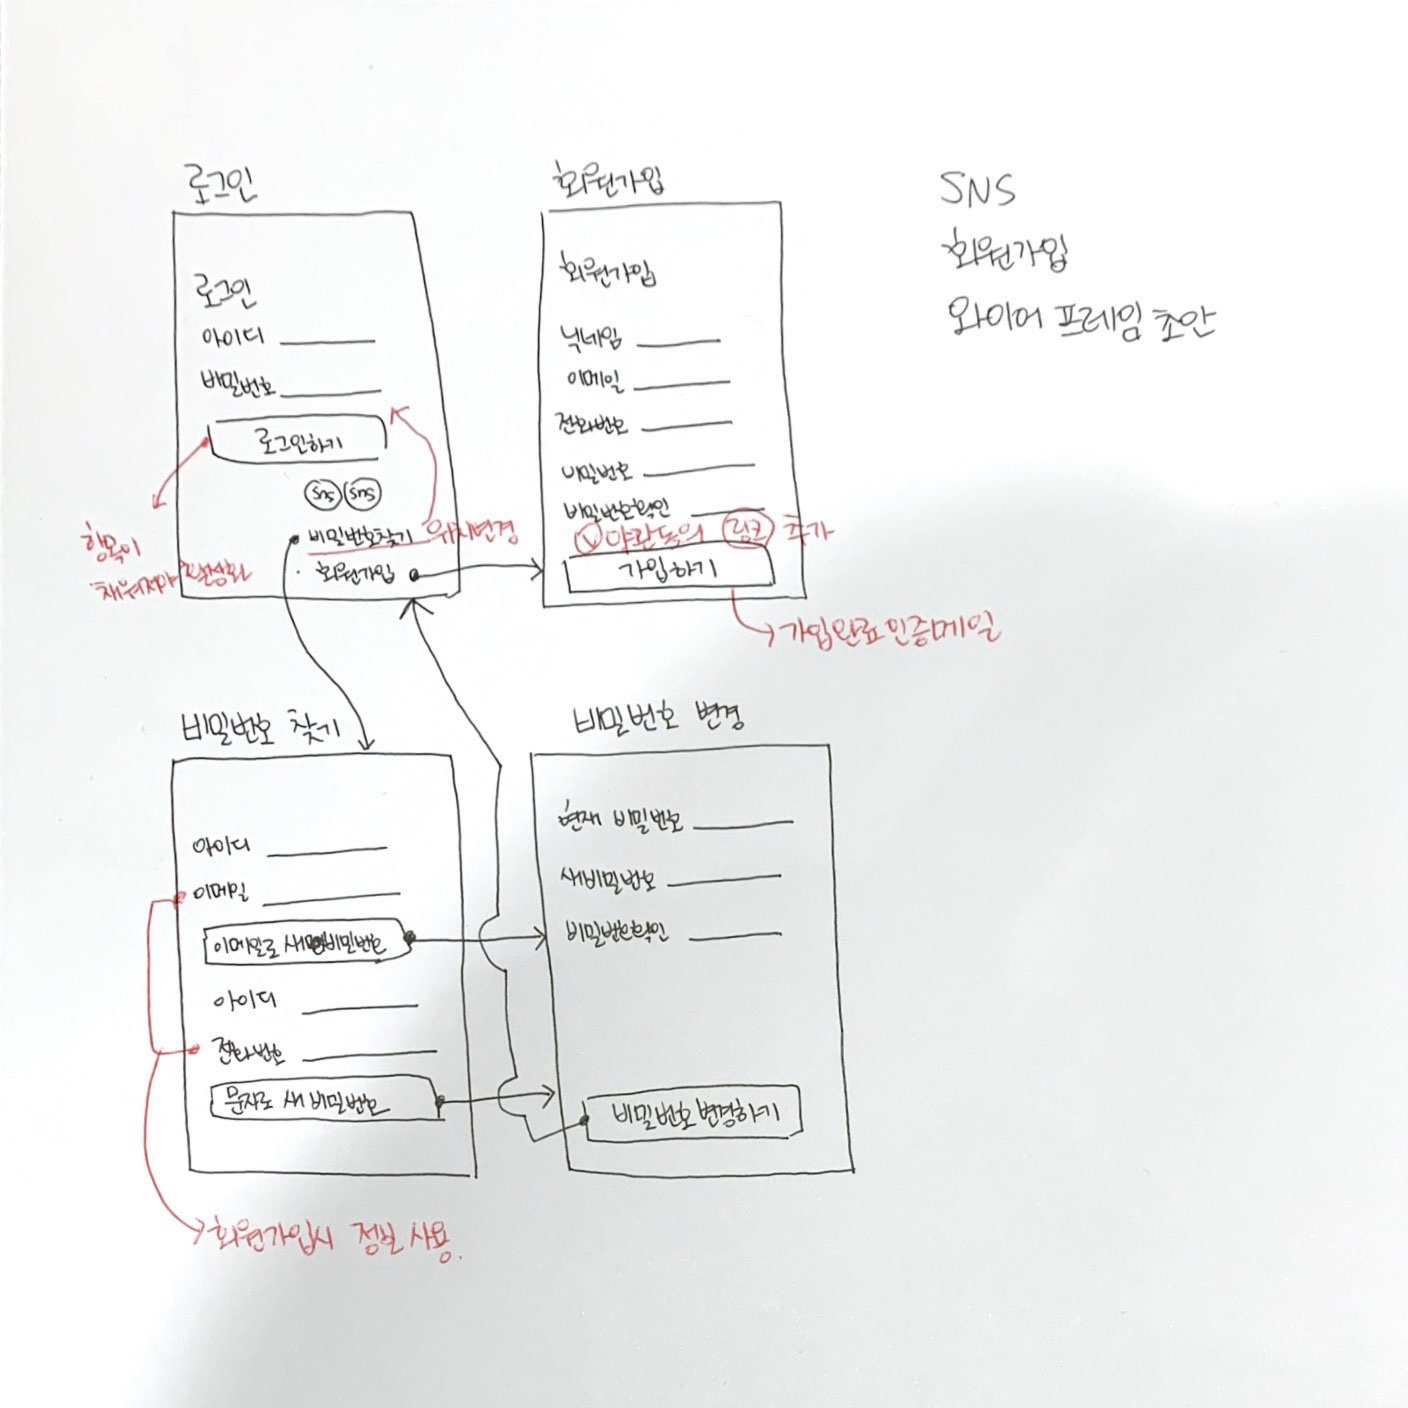 로그인
로그인
아이디
비밀번호
로그인하기
sns sns
비밀번호찾기 위치변경
회원가입
항목이
채워져야 활성화
회원가입
회원가입
닉네임
이메일
전화번호
비밀번호
비밀번호확인
V 약관동의 링크 추가
가입하기
가입완료인증메일
SNS
회원가입
와이어 프레임 초안
비밀번호 찾기
아이디
이메일
이메일로 새 비밀번호
아이디
전화번호
문자로 새 비밀번호
회원가입시 정보 사용.
비밀번호 변경
현재 비밀번호
새비밀번호
비밀번호확인
비밀번호변경하기